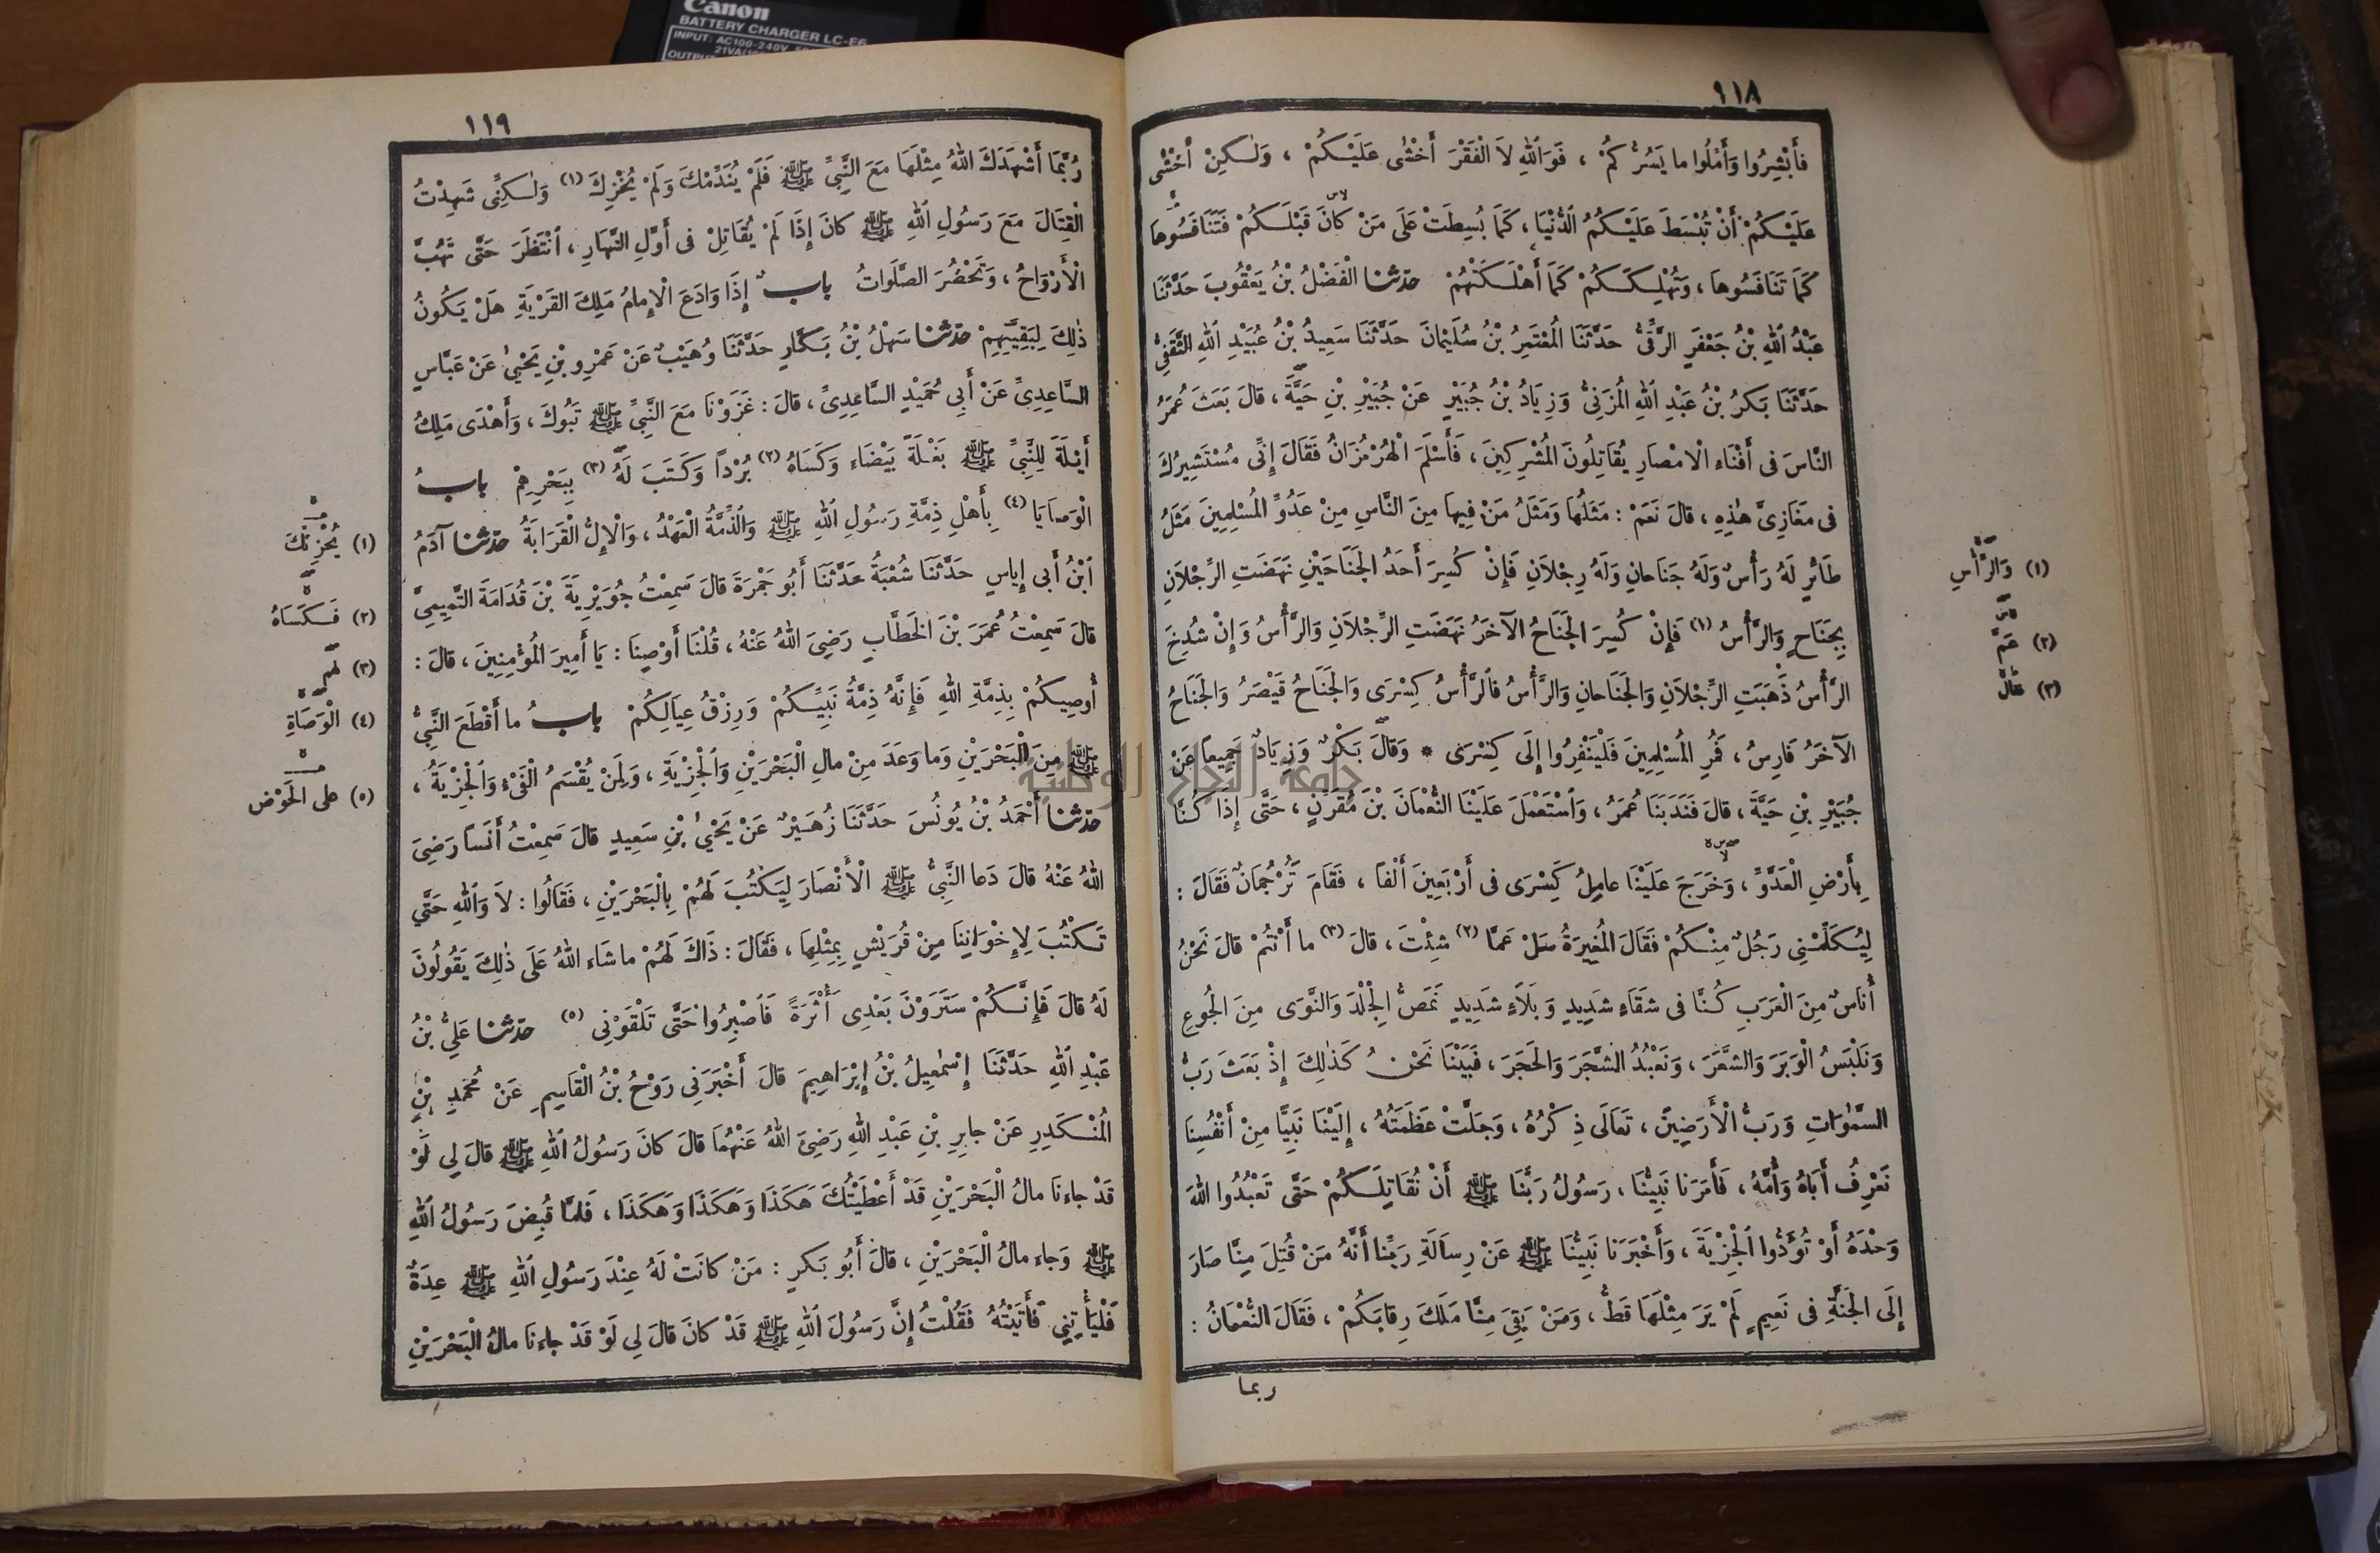 Canon
BATTERY CHARGER LC-E6
INPUT: AC100-240V
١١٨
فَأَبْشِرُوا وَأَمِّلُوا ما يَسُرُّكُمْ ، فَوَاللهِ لاَ الْفَقْرَ أَخْشٰى عَلَيْكُمْ ، وَلٰكِنْ أَخْشٰى
عَلَيْكُمْ أَنْ تُبْسَطَ عَلَيْكُمُ الدُّنْيَا ، كَمَا بُسِطَتْ عَلَى مَنْ كانَ قَبْلَكُمْ فَتَنَافَسُوها
كَمَا تَنَافَسُوهَا ، وَتُهْلِكَكُمْ كَمَا أَهْلَكَتْهُمْ حدّثنا الْفَضْلُ بْنُ يَعْقُوبَ حَدَّثَنَا
عَبْدُ اللهِ بْنُ جَعْفَرٍ الرَّقِّىُّ حَدَّثَنَا الْمُعْتَمِرُ بْنُ سُلَيْمانَ حَدَّثَنَا سَعِيدُ بْنُ عُبَيْدِ اللهِ الثَّقَفِىُّ
حَدَّثَنَا بَكْرُ بْنُ عَبْدِ اللهِ الْمُزَنِىُّ وَزِيَادُ بْنُ جُبَيْرٍ عَنْ جُبَيْرِ بْنِ حَيَّةَ ، قالَ بَعَثَ عُمَرُ
النَّاسَ فى أَفْنَاءِ الْأَمْصَارِ يُقَاتِلُونَ الْمُشْرِكِينَ ، فَأَسْلَمَ الْهُرْمُزَانُ فَقَالَ إِنِّى مُسْتَشِيرُكَ
فى مَغَازِىَّ هٰذِهِ ، قالَ نَعَمْ : مَثَلُهَا وَمَثَلُ مَنْ فِيهَا مِنَ النَّاسِ مِنْ عَدُوِّ الْمُسْلِمِينَ مَثَلُ
طَائِرٍ لَهُ رَأْسٌ وَلَهُ جَنَاحانِ وَلَهُ رِجْلاَنِ فَإِنْ كُسِرَ أَحَدُ الْجَنَاحَيْنِ نَهَضَتِ الرِّجْلاَنِ
بِجَنَاحٍ وَالرَّأْسُ (١) فَإِنْ كُسِرَ الْجَنَاحُ الآخَرُ نَهَضَتِ الرِّجْلاَنِ وَالرَّأْسُ وَإِنْ شُدِخَ
الرَّأْسُ ذَهَبَتِ الرِّجْلاَنِ وَالْجَنَاحانِ وَالرَّأْسُ فَالرَّأْسُ كِسْرَى وَالْجَنَاحُ قَيْصَرُ وَالْجَنَاحُ
الآخَرُ فَارِسُ ، فَمُرِ الْمُسْلِمِينَ فَلْيَنْفِرُوا إِلَى كِسْرَى * وَقالَ بَكْرٌ وَزِيَادٌ جَمِيعاً عَنْ
جُبَيْرِ بْنِ حَيَّةَ ، قالَ فَنَدَبَنَا عُمَرُ ، وَاسْتَعْمَلَ عَلَيْنَا النُّعْمَانَ بْنَ مُقَرِّنٍ ، حَتَّى إِذَا كُنَّا
بِأَرْضِ الْعَدُوِّ ، وَخَرَجَ عَلَيْنَا عامِلُ كِسْرَى فى أَرْبَعِينَ أَلْفاً ، فَقَامَ تُرْجُمَانٌ فَقَالَ :
لِيُكَلِّمْنِى رَجُلٌ مِنْكُمْ فَقَالَ الْمُغِيرَةُ سَلْ عَمَّا (٢) شِئْتَ ، قالَ (٣) ما أَنْتُمْ قالَ نَحْنُ
أُنَاسٌ مِنَ الْعَرَبِ كُنَّا فى شَقَاءٍ شَدِيدٍ وَبَلاَءٍ شَدِيدٍ نَمَصُّ الْجِلْدَ وَالنَّوَى مِنَ الْجُوعِ
وَنَلْبَسُ الْوَبَرَ وَالشَّعَرَ ، وَنَعْبُدُ الشَّجَرَ وَالْحَجَرَ ، فَبَيْنَا نَحْنُ كَذٰلِكَ إِذْ بَعَثَ رَبُّ
السَّمٰوَاتِ وَرَبُّ الْأَرَضِينَ ، تَعَالَى ذِكْرُهُ ، وَجَلَّتْ عَظَمَتُهُ ، إِلَيْنَا نَبِيًّا مِنْ أَنْفُسِنَا
نَعْرِفُ أَبَاهُ وَأُمَّهُ ، فَأَمَرَنَا نَبِيُّنَا ، رَسُولُ رَبِّنَا ﷺ أَنْ نُقَاتِلَكُمْ حَتَّى تَعْبُدُوا اللهَ
وَحْدَهُ أَوْ تُؤَدُّوا الْجِزْيَةَ ، وَأَخْبَرَنَا نَبِيُّنَا ﷺ عَنْ رِسَالَةِ رَبِّنَا أَنَّهُ مَنْ قُتِلَ مِنَّا صَارَ
إِلَى الْجَنَّةِ فى نَعِيمٍ لَمْ يَرَ مِثْلَهَا قَطُّ ، وَمَنْ بَقِىَ مِنَّا مَلَكَ رِقابَكُمْ ، فَقَالَ النُّعْمَانُ :
ربما
(١) وَالرَّأْسِ
(٢) عَمَّ
(٣) فَقَالَ
١١٩
رُبَّمَا أَشْهَدَكَ اللهُ مِثْلَهَا مَعَ النَّبِىِّ ﷺ فَلَمْ يُنَدِّمْكَ وَلَمْ يُخْزِكَ (١) وَلٰكِنِّى شَهِدْتُ
الْقِتَالَ مَعَ رَسُولِ اللهِ ﷺ كانَ إِذَا لَمْ يُقَاتِلْ فى أَوَّلِ النَّهَارِ ، انْتَظَرَ حَتَّى تَهُبَّ
الْأَرْوَاحُ ، وَتَحْضُرَ الصَّلَوَاتُ بابٌ إِذَا وَادَعَ الْإِمامُ مَلِكَ الْقَرْيَةِ هَلْ يَكُونُ
ذٰلِكَ لِبَقِيَّتِهِمْ حدّثنا سَهْلُ بْنُ بَكَّارٍ حَدَّثَنَا وُهَيْبٌ عَنْ عَمْرِو بْنِ يَحْيٰى عَنْ عَبَّاسٍ
السَّاعِدِىِّ عَنْ أَبِى حُمَيْدٍ السَّاعِدِىِّ ، قالَ : غَزَوْنَا مَعَ النَّبِىِّ ﷺ تَبُوكَ ، وَأَهْدَى مَلِكُ
أَيْلَةَ لِلنَّبِىِّ ﷺ بَغْلَةً بَيْضَاءَ وَكَسَاهُ (٢) بُرْداً وَكَتَبَ لَهُ (٣) بِبَحْرِهِمْ بابُ
الْوَصَايَا (٤) بِأَهْلِ ذِمَّةِ رَسُولِ اللهِ ﷺ وَالذِّمَّةُ الْعَهْدُ ، وَالْإِلُّ الْقَرَابَةُ حدّثنا آدَمُ
ابْنُ أَبِى إِيَاسٍ حَدَّثَنَا شُعْبَةُ حَدَّثَنَا أَبُو جَمْرَةَ قالَ سَمِعْتُ جُوَيْرِيَةَ بْنَ قُدَامَةَ التَّمِيمِىَّ
قالَ سَمِعْتُ عُمَرَ بْنَ الْخَطَّابِ رَضِىَ اللهُ عَنْهُ ، قُلْنَا أَوْصِنَا : يَا أَمِيرَ الْمُؤْمِنِينَ ، قالَ :
أُوصِيكُمْ بِذِمَّةِ اللهِ فَإِنَّهُ ذِمَّةُ نَبِيِّكُمْ وَرِزْقُ عِيَالِكُمْ بابُ ما أَقْطَعَ النَّبِىُّ
ﷺ مِنَ الْبَحْرَيْنِ وَما وَعَدَ مِنْ مالِ الْبَحْرَيْنِ وَالْجِزْيَةِ ، وَلِمَنْ يُقْسَمُ الْفَىْءُ وَالْجِزْيَةُ ،
حدّثنا أَحْمَدُ بْنُ يُونُسَ حَدَّثَنَا زُهَيْرٌ عَنْ يَحْيٰى بْنِ سَعِيدٍ قالَ سَمِعْتُ أَنَساً رَضِىَ
اللهُ عَنْهُ قالَ دَعا النَّبِىُّ ﷺ الْأَنْصَارَ لِيَكْتُبَ لَهُمْ بِالْبَحْرَيْنِ ، فَقَالُوا : لاَ وَاللهِ حَتَّى
تَكْتُبَ لِإِخْوَانِنَا مِنْ قُرَيْشٍ بِمِثْلِهَا ، فَقَالَ : ذَاكَ لَهُمْ ما شَاءَ اللهُ عَلَى ذٰلِكَ يَقُولُونَ
لَهُ قالَ فَإِنَّكُمْ سَتَرَوْنَ بَعْدِى أَثَرَةً فَاصْبِرُوا حَتَّى تَلْقَوْنِى (٥) حدّثنا عَلِىُّ بْنُ
عَبْدِ اللهِ حَدَّثَنَا إِسْمٰعِيلُ بْنُ إِبْرَاهِيمَ قالَ أَخْبَرَنِى رَوْحُ بْنُ الْقَاسِمِ عَنْ مُحَمَّدِ بْنِ
الْمُنْكَدِرِ عَنْ جابِرِ بْنِ عَبْدِ اللهِ رَضِىَ اللهُ عَنْهُمَا قالَ كانَ رَسُولُ اللهِ ﷺ قالَ لِى لَوْ
قَدْ جاءنَا مالُ الْبَحْرَيْنِ قَدْ أَعْطَيْتُكَ هَكَذَا وَهَكَذَا وَهَكَذَا ، فَلَمَّا قُبِضَ رَسُولُ اللهِ
ﷺ وَجاء مالُ الْبَحْرَيْنِ ، قالَ أَبُو بَكْرٍ : مَنْ كانَتْ لَهُ عِنْدَ رَسُولِ اللهِ ﷺ عِدَةٌ
فَلْيَأْتِنِى فَأَتَيْتُهُ فَقُلْتُ إِنَّ رَسُولَ اللهِ ﷺ قَدْ كانَ قالَ لِى لَوْ قَدْ جاءنَا مالُ الْبَحْرَيْنِ
(١) يُحْزِنْكَ
(٢) فَكَسَاهُ
(٣) لَهُمْ
(٤) الْوَصَاةِ
(٥) على الْحَوْضِ
جامعة النجاح الوطنية